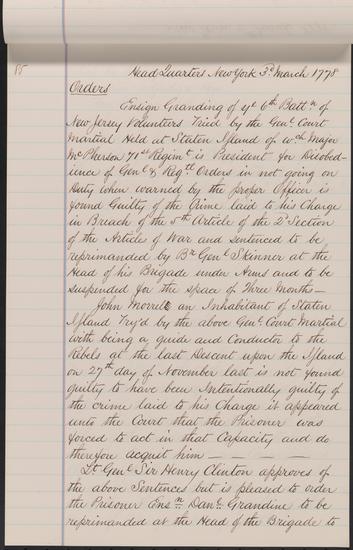 Head Quarters New York 3d. March 1778
Orders
Ensign Granding of ye 6th Battn. of
New Jersey Volunteers Tried by the Genl. Court
Martial Held at Staten Island of wch. Major
McPherson 71st Regimt. is President for Disobed-
ience of Genl. & Regtl Orders in not going on
Duty when warned by the proper Officer is
found Guilty of the Crime laid to his Charge
in Breach of the 5th Article of the 2d Section
of the Article of War and sentenced to be
reprimanded by Br Genl. Skinner at the
Head of his Brigade under Arms and to be
suspended for the space of Three Months —
John Morrell an Inhabitant of Staten
Island Try'd by the above Genl. Court Martial
with being a guide and Conductor to the
Rebels at the last Descent upon the Island
on 27th day of November last is not found
guilty to have been Intentionally guilty of
the crime laid to his Charge it appeared
unto the Court that the Prisoner was
forced to act in that Capacity and do
therefore acquit him — — — — —
Lt Genl. Sir Henry Clinton approves of
the above Sentences but is pleased to order
the Prisoner Ensn. Danl. Grandine to be
reprimanded at the Head of the Brigade to